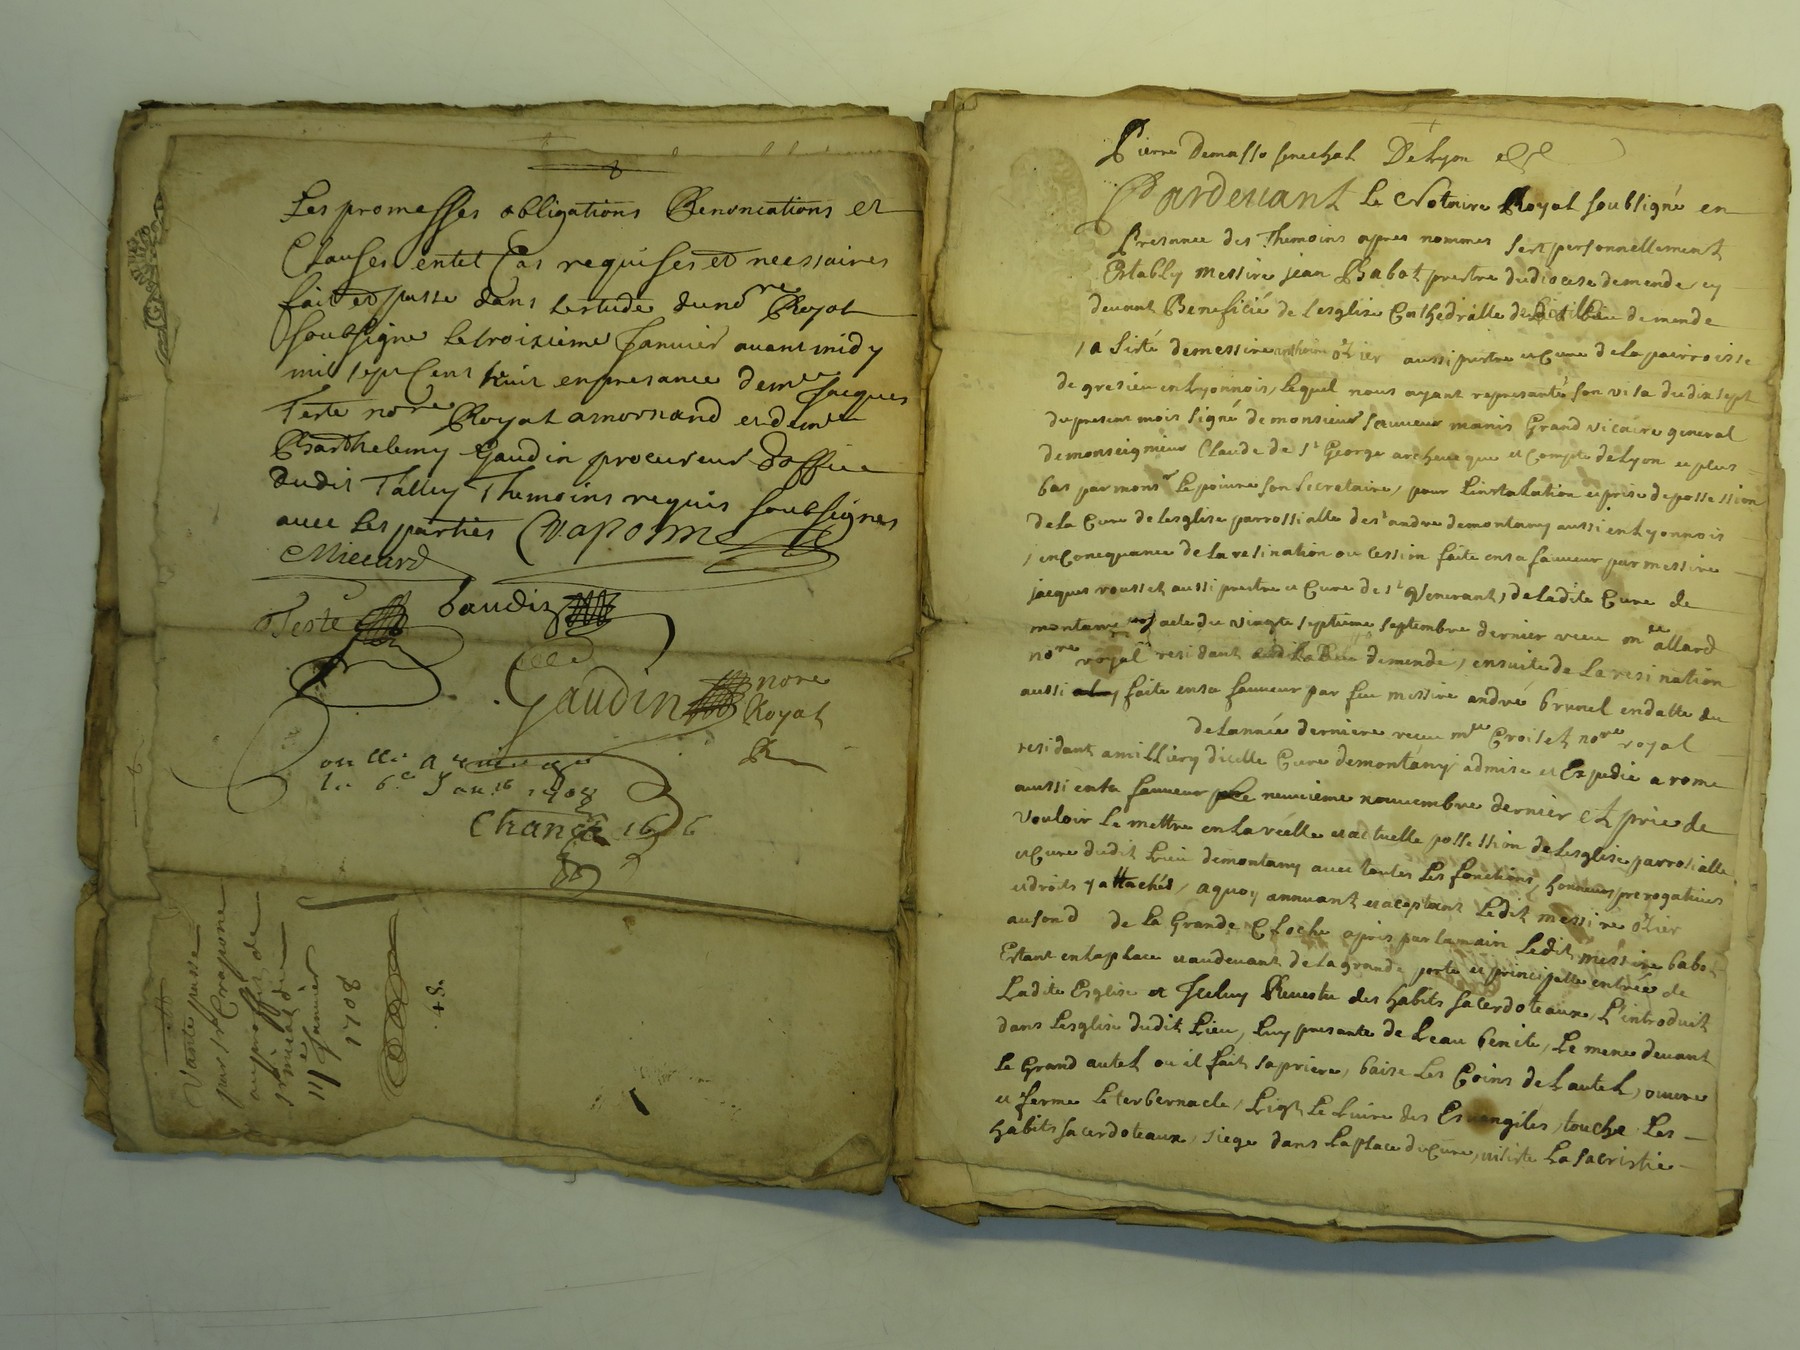 Les promesses obligations Renonciations et
Clauses entel Cas requises et necessaires
fait et passe dans lestude dud nore Royal
soubsigne le troisieme Janvier avant midy
mil sept Cent huit en presance de me Jacques
Teste nore Royal a mornand et de me
Barthelemy Gaudin procureur doffice
dudit Talluy Themoins requis soubsignes
avec les parties
Teste Gaudin
Gaudin nore
Royal
le 6e Jan. 1708
Vante passe
par sr Crapone
au proffit de
sr
III Janvier
1708
48
Pierre Demasso senechal De Lyon
Pardevant Le Notaire Royal soubsigné en
Presance des Themoins apres nommes sest personnellement
Estably messire jean Babot prestre du diocese demende cy
devant Beneficié de Lesglise Cathedralle demende
aussi prestre et Cure de La parroisse
de gresieu en Lyonnois, Lequel nous ayant representé son visa du dix sept
du presant mois signé de monsieur manis Grand vicaire general
de monseigneur Claude de St George archeveque et Compte de Lyon et plus
bas par monsr Lepoivre son secretaire, pour Linstalation et prise de possession
de La Cure de Lesglise parrossialle de st andre demontany aussi en Lyonnois
en Concequance de La resination ou cession faite en sa faveur par messire
jacques rousset aussi prestre et Cure de st Venerant, de ladite Cure de
montany acte du vingte septieme septembre dernier receu me allard
nore royal residant demende, ensuite de La resination
aussi faite en sa faveur par feu messire andré brunel en datte du
de Lannée derniere receu me Croiset nore royal
residant a milliery dicelle Cure demontany admise et Expedie a rome
aussi en sa faveur Le neuvieme novembre dernier et prie de
vouloir Le mettre en La réelle et actuelle possession de Lesglise parrosialle
et Cure dudit Lieu demontany avec toutes Les fonctions, honneurs prerogatives
et droits y attachés, a quoy annuant et aceptant Ledit messire
au son d de La Grande Cloche a pris par La main Ledit messire babot
Estant en La place et au devant de La grande porte et principalle entrée de
Ladite Esglise et Iceluy Revestu des habits sacerdoteaux, L'introduit
dans Lesglise dudit Lieu, Luy presante de Leau benite, Le mene devant
Le Grand autel ou il fait sa priere, baise Les Coins de Lautel, ouvre
et ferme Le terbernacle, List Le Livre des Esvangiles, touche Les
habits sacerdoteaux, siege dans La place du Cure, visiste La sacristie